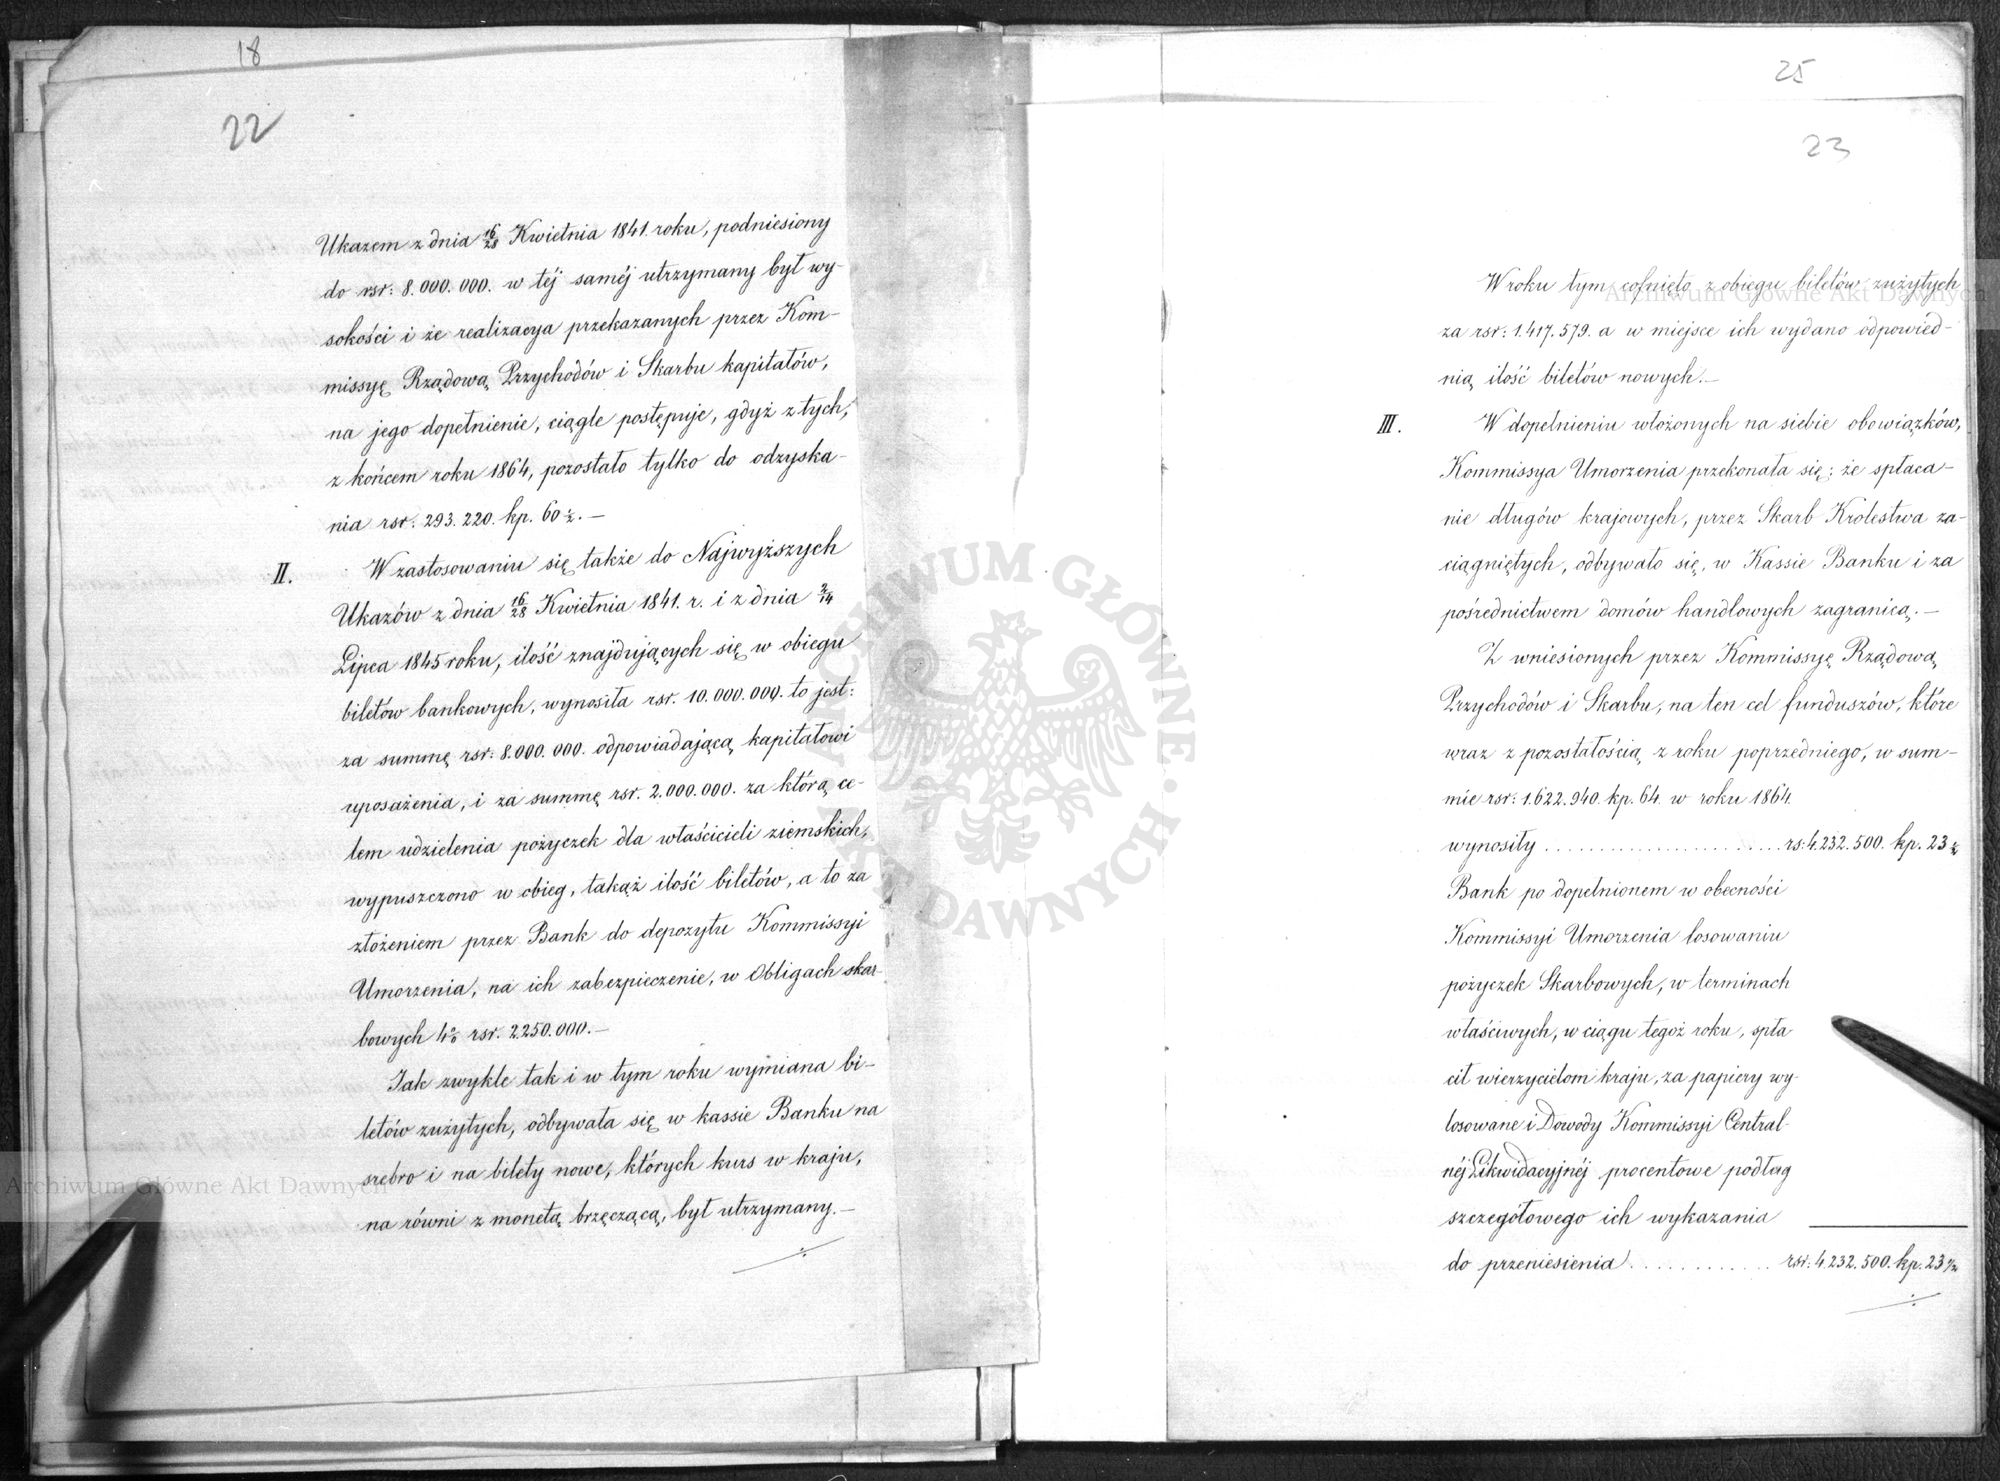 18
22
Ukazem z dnia 16/28 Kwietnia 1841. roku, podniesiony
do rsr: 8.000.000. w téj saméj utrzymany był wy-
sokości i że realizacya przekazanych przez Kom-
missyę Rządową Przychodów i Skarbu kapitałów,
na jego dopełnienie, ciągle postępuje, gdyż z tych,
z końcem roku 1864, pozostało tylko do odzyska-
nia rsr: 293.220. kp. 60 ½. —
II. W zastosowaniu się także do Najwyższych
Ukazów z dnia 16/28 Kwietnia 1841. r. i z dnia 2/14
Lipca 1845 roku, ilość znajdujących się w obiegu
biletów bankowych, wynosiła rsr. 10.000.000. to jest:
za summę rsr: 8.000.000. odpowiadającą kapitałowi
uposażenia, i za summę rsr. 2.000.000. za którą ce-
lem udzielenia pożyczek dla właścicieli ziemskich,
wypuszczono w obieg, takąż ilość biletów, a to za
złożeniem przez Bank do depozytu Kommissyi
Umorzenia, na ich zabezpieczenie, w Obligach skar-
bowych 4% rsr. 2.250.000. —
Jak zwykle tak i w tym roku wymiana bi-
letów zużytych, odbywała się w kassie Banku na
srebro i na bilety nowe, których kurs w kraju,
na równi z monetą brzęczącą, był utrzymany. —
25
23
W roku tym cofnięto z obiegu biletów zużytych
za rsr: 1.417.579. a w miejsce ich wydano odpowied-
nią ilość biletów nowych. —
III. W dopełnieniu włożonych na siebie obowiązków,
Kommissya Umorzenia przekonała się; że spłaca-
nie długów krajowych, przez Skarb Królestwa za-
ciągniętych, odbywało się, w Kassie Banku i za
pośrednictwem domów handlowych zagranicą. —
Z wniesionych przez Kommissyę Rządową
Przychodów i Skarbu, na ten cel funduszów, które
wraz z pozostałością z roku poprzedniego, w sum-
mie rsr: 1.622.940. kp. 64. w roku 1864.
wynosiły . . . . . . . . . . rs: 4.232.500. kp. 23 ½
Bank po dopełnionem w obecności
Kommissyi Umorzenia losowaniu
pożyczek Skarbowych, w terminach
właściwych, w ciągu tegoż roku, spła
cił wierzycielom kraju, za papiery wy-
losowane i Dowody Kommissyi Central-
néj Likwidacyjnéj procentowe podług
szczegółowego ich wykazania
do przeniesienia . . . . . . . . . . rsr: 4.232.500. kp. 23 ½
Archiwum Główne Akt Dawnych
Archiwum Główne Akt Dawnych
ARCHIWUM GŁÓWNE · AKT DAWNYCH ·